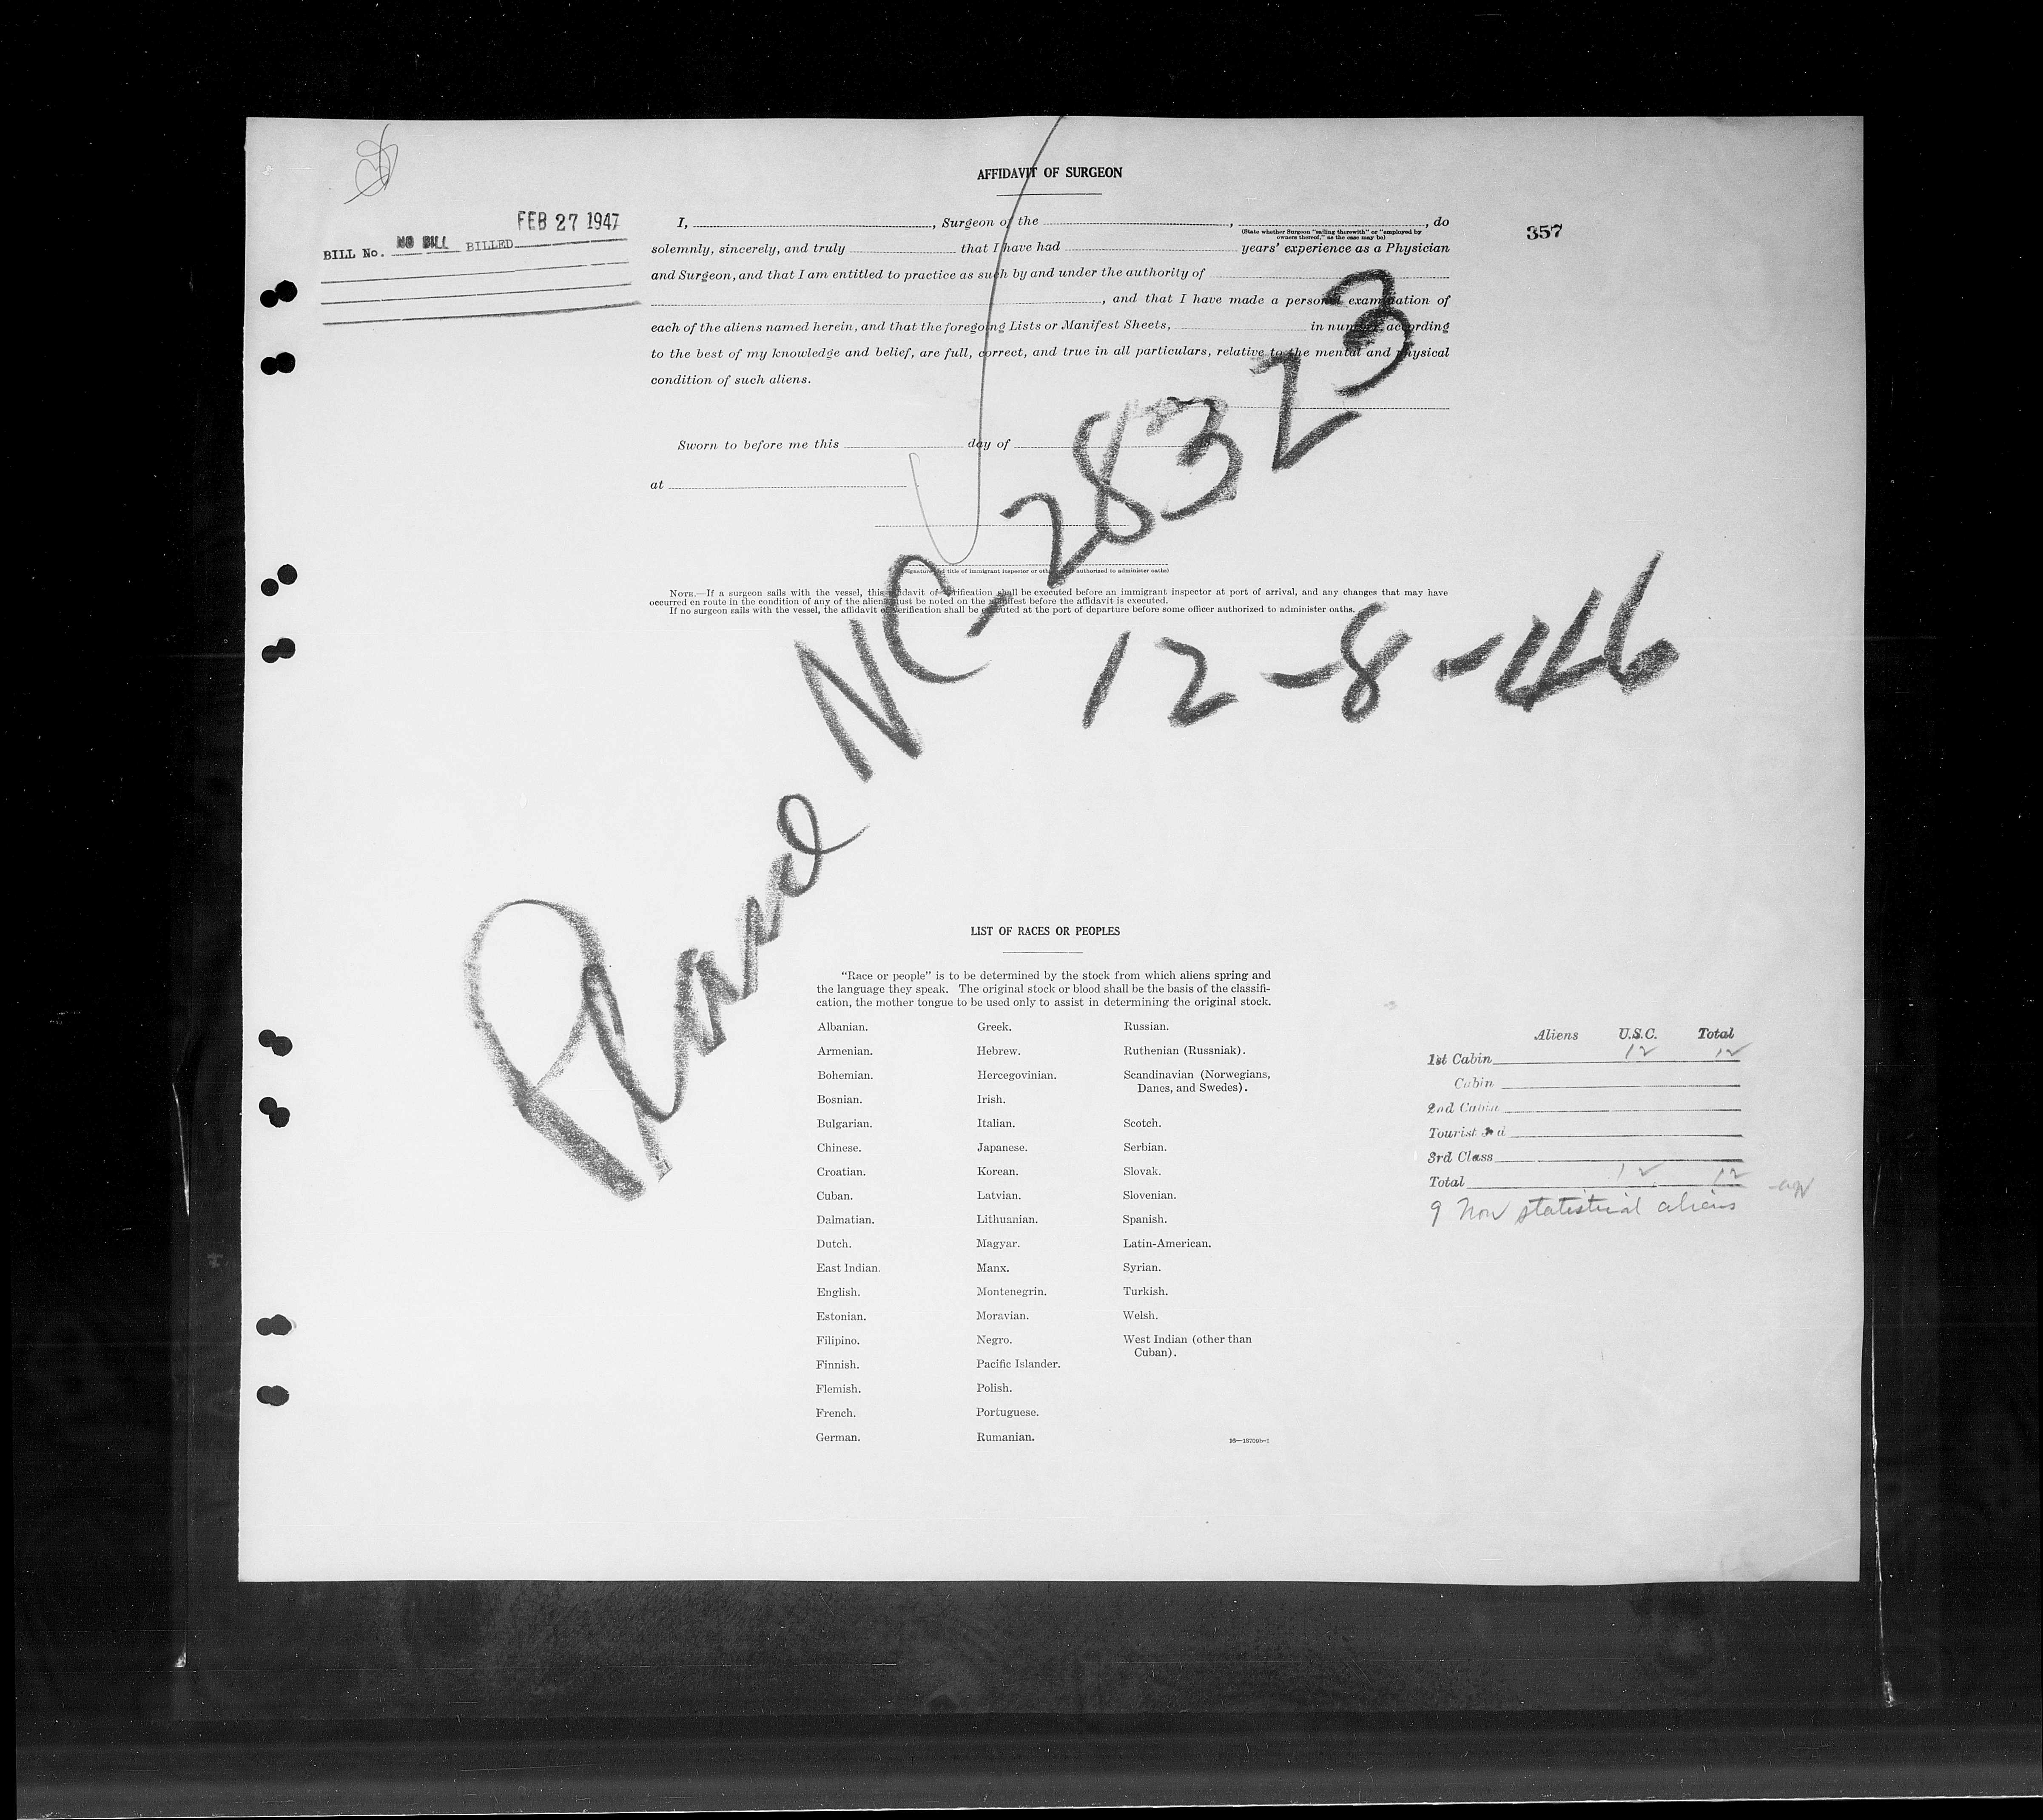 AFFIDAVIT OF SURGEON
FEB 27 1947
BILL No. NO BILL BILLED
357
I, , Surgeon of the , , do
(State whether Surgeon "sailing therewith" or "employed by
owners thereof," as the case may be)
solemnly, sincerely, and truly that I have had years' experience as a Physician
and Surgeon, and that I am entitled to practice as such by and under the authority of
, and that I have made a personal examination of
each of the aliens named herein, and that the foregoing Lists or Manifest Sheets, in number, according
to the best of my knowledge and belief, are full, correct, and true in all particulars, relative to the mental and physical
condition of such aliens.
Sworn to before me this day of
at
(Signature and title of immigrant inspector or other authorized to administer oaths)
NOTE.—If a surgeon sails with the vessel, this affidavit of verification shall be executed before an immigrant inspector at port of arrival, and any changes that may have
occurred en route in the condition of any of the aliens must be noted on the manifest before the affidavit is executed.
If no surgeon sails with the vessel, the affidavit of verification shall be executed at the port of departure before some officer authorized to administer oaths.
Plane NC-28323
12-8-46
LIST OF RACES OR PEOPLES
"Race or people" is to be determined by the stock from which aliens spring and
the language they speak. The original stock or blood shall be the basis of the classifi-
cation, the mother tongue to be used only to assist in determining the original stock.
Albanian.
Armenian.
Bohemian.
Bosnian.
Bulgarian.
Chinese.
Croatian.
Cuban.
Dalmatian.
Dutch.
East Indian.
English.
Estonian.
Filipino.
Finnish.
Flemish.
French.
German.
Greek.
Hebrew.
Hercegovinian.
Irish.
Italian.
Japanese.
Korean.
Latvian.
Lithuanian.
Magyar.
Manx.
Montenegrin.
Moravian.
Negro.
Pacific Islander.
Polish.
Portuguese.
Rumanian.
Russian.
Ruthenian (Russniak).
Scandinavian (Norwegians,
Danes, and Swedes).
Scotch.
Serbian.
Slovak.
Slovenian.
Spanish.
Latin-American.
Syrian.
Turkish.
Welsh.
West Indian (other than
Cuban).
16—18709b-1
Aliens U.S.C. Total
1st Cabin 12 12
Cabin
2nd Cabin
Tourist 3rd
3rd Class
Total 12 12
9 Non statistical aliens